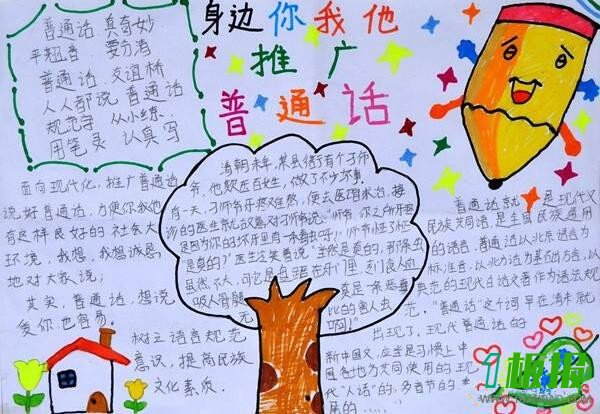 身边你我他
推广
普通话
普通话 真奇妙
平翘音 要分清
普通话 友谊桥
人人都说 普通话
规范字 从小练
用笔灵 认真写
面向现代化，推广普通话
说好普通话，方便你我他
有这样良好的社会大
环境，我想，我想诚恳
地对大家说：
其实，普通话，想说
爱你也容易。
树立语音规范
意识，提高民族
文化素质。
清朝末年，某县衙有个刁师
爷，他欺压百姓，做了不少坏事。
有一天，刁师爷牙疼难忍，便去医馆求治，接
诊的医生就故意对刁师爷说：“师爷，你之所以牙疼
是因为你的坏牙里有一条毒虫呀！”
是真的？”医生冷笑着说：“当然是真的，那条虫
虽然不大，可它是自(
吸人骨髓
普通话就是现代汉
民族共同语，是全国各民族通用
的语言。普通话以北京语音为
标准音，以北方话为基础方言，以
典范的现代白话文著作为语法规
范，“普通话”这个词早在清末就
出现了，现代普通话的
新中国文，应当是习惯上中
国各地为共同使用的现
代“人话”的，多音节的
展的……
1板报